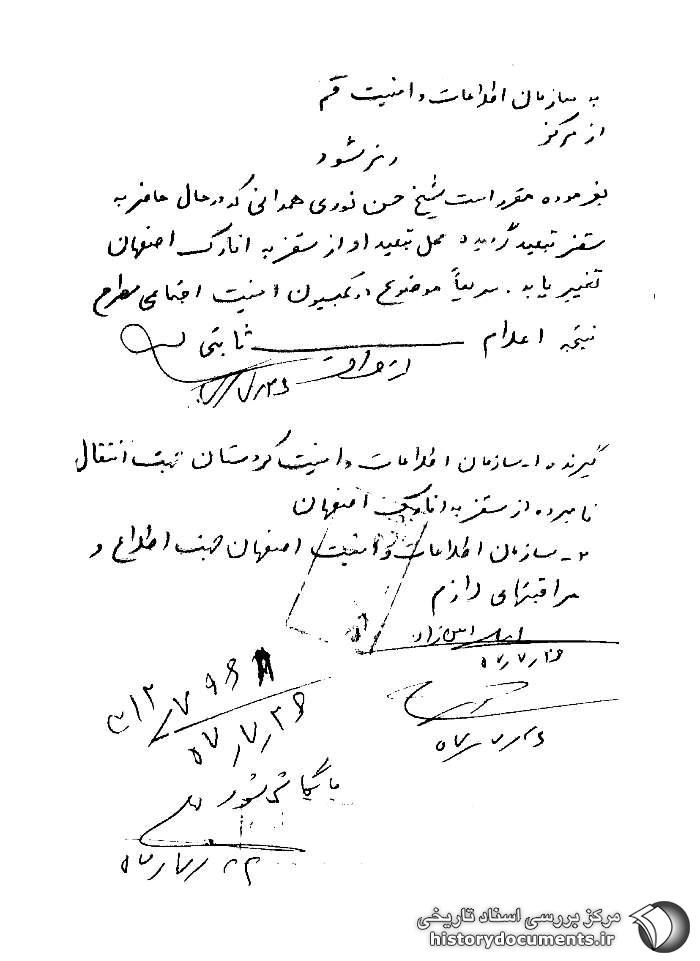 به سازمان اطلاعات و امنیت قم
از مرکز
رمز شود
بفرموده مقرر است شیخ حسن نوری همدانی که در حال حاضر به
سقز تبعید گردیده محل تبعید او از سقز به انارک اصفهان
تغییر یابد. سریعاً موضوع در کمیسیون امنیت اجتماعی مطرح
نتیجه اعلام ثابتی
۷/۲۶
گیرنده ۱- سازمان اطلاعات و امنیت کردستان جهت انتقال
نامبرده از سقز به انارک اصفهان
۲- سازمان اطلاعات و امنیت اصفهان جهت اطلاع و
مراقبتهای لازم
۵۷/۷/۲۶
۵۷/۷/۲۶
۵۷/۷/۲۶
بایگانی شود
مرکز بررسی اسناد تاریخی
historydocuments.ir